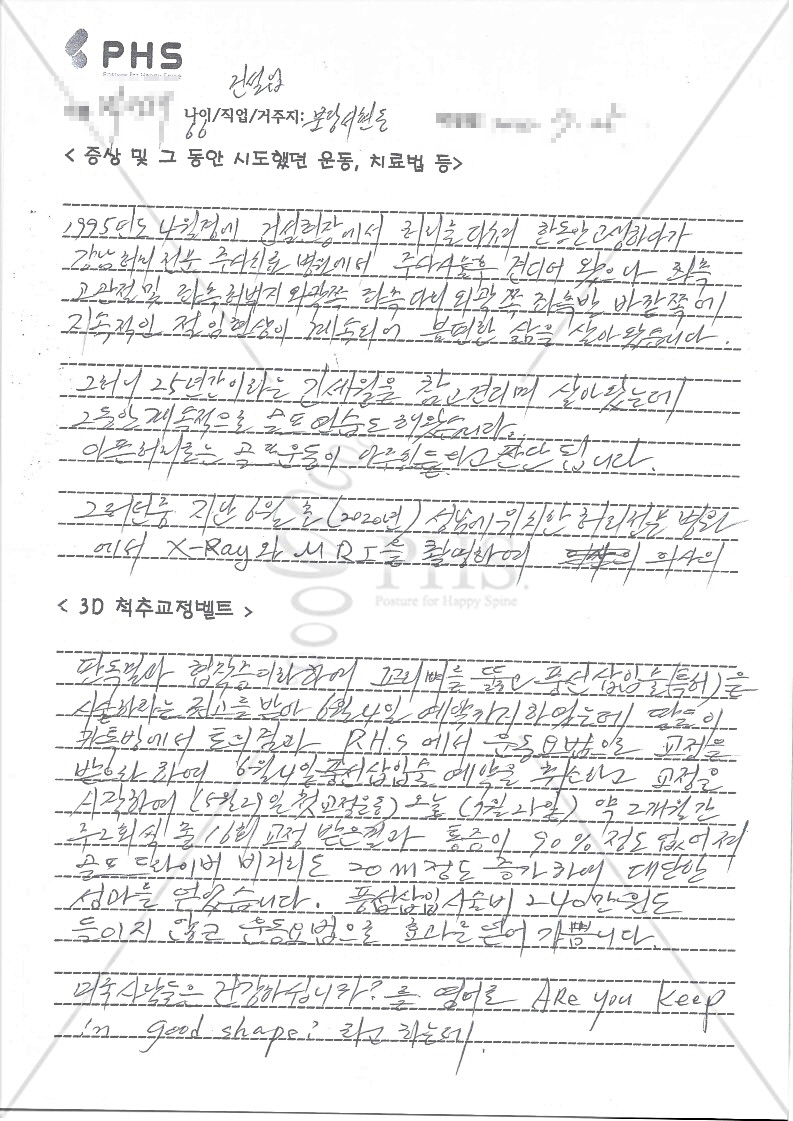 PHS
Posture for Happy Spine
건설업
나이/직업/거주지: 분당서현동
< 증상 및 그 동안 시도했던 운동, 치료법 등>
1995년도 4월경에 건설현장에서 허리를 다쳐 한동안 고생하다가
강남허리전문 주사치료 병원에서 주사시술후 견디어 왔으나 좌측
고관절 및 좌측허벅지 외곽쪽 좌측다리 외곽쪽 좌측발 바깥쪽에
지속적인 저림현상이 계속되어 불편한 삶을 살아왔습니다.
그러니 25년간이라는 긴세월을 참고견디며 살아왔는데
그동안 계속적으로 골프연습도 해왔습니다.
아픈허리로는 골프운동이 아주힘들다고 판단 됩니다.
그러던중 지난 6월 초 (2020년) 성남에 위치한 허리전문 병원
에서 X-Ray와 MRI을 촬영하여 의사의
PHS.
Posture for Happy Spine
< 3D 척추교정벨트 >
판독결과 협착증이라하여 꼬리뼈를 뚫고 풍선삽입술(특허)을
시술하라는 권고를 받아 6월4일 예약까지 하였는데 딸들이
카톡방에서 토의결과 P.H.S 에서 운동요법으로 교정을
받으라 하여 6월4일 풍선삽입술 예약을 취소하고 교정을
시작하여 (5월29일 첫교정을함) 오늘 (7월28일) 약 2개월간
주2회씩 총 16회 교정 받은결과 통증이 90%정도 없어져
골프 드라이버 비거리도 20m정도 증가하여 대단한
성과를 얻었습니다. 풍선삽입시술비 240만원도
들이지 않고 운동요법으로 효과를 얻어 기쁩니다.
미국사람들은 건강하십니까? 를 영어로 ARe you Keep
in good shape? 라고 하는데.